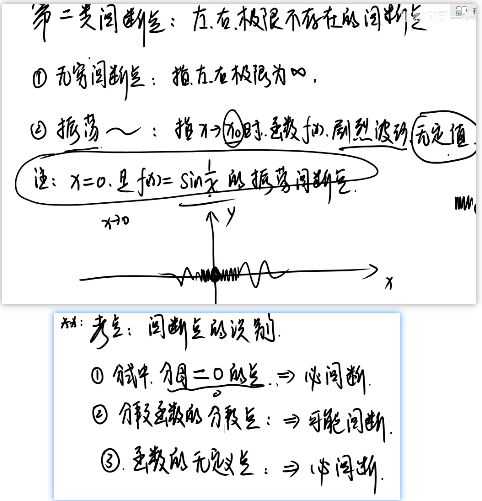 第二类间断点：左、右极限不存在的间断点
① 无穷间断点：指左、右极限为∞，
② 振荡～：指x→x₀时.函数f(x).剧烈波动,无定值.
注：x=0.是f(x)=sin 1/x 的振荡间断点.
x→0
y
x
**：考点：间断点的识别.
① 分式中.分母=0的点. ⇒ 必间断.
0
② 分段函数的分段点：⇒ 可能间断.
③. 函数的无定义点：⇒ 必间断.